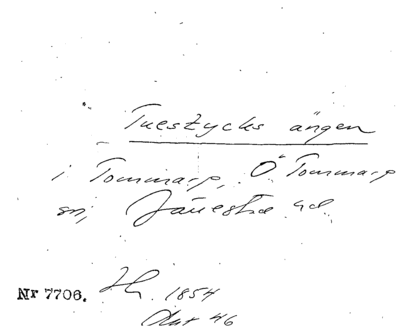 Tuestycks ängen
i Tommarp, Ö Tommarp
sn, Järrestad hd
Nr 7706. 1854
Akt 46